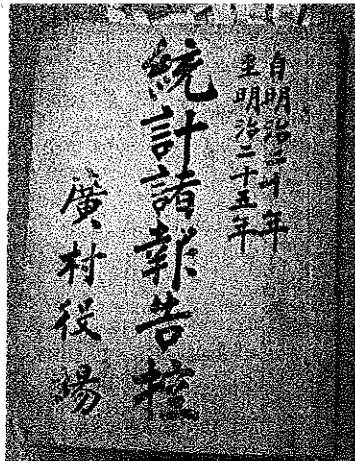 自明治二十年
至明治二十五年
統計諸報告控
廣村役場